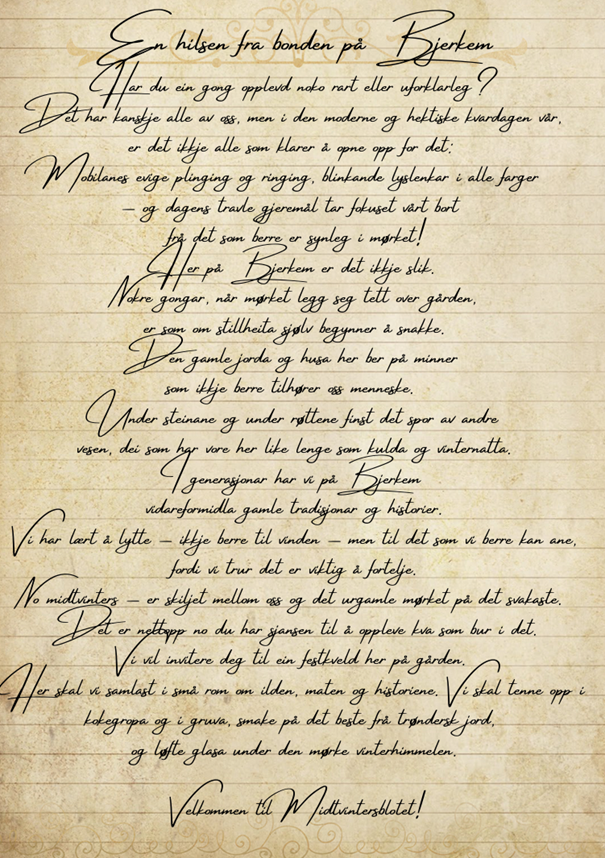 En hilsen fra bonden på Bjerkem
Har du ein gong opplevd noko rart eller uforklarleg?
Det har kanskje alle av oss, men i den moderne og hektiske kvardagen vår,
er det ikkje alle som klarer å opne opp for det;
Mobilanes evige plinging og ringing, blinkande lyslenkar i alle farger
– og dagens travle gjeremål tar fokuset vårt bort
frå det som berre er synleg i mørket!
Her på Bjerkem er det ikkje slik.
Nokre gongar, når mørket legg seg tett over gården,
er som om stillheita sjølv begynner å snakke.
Den gamle jorda og husa her ber på minner
som ikkje berre tilhører oss menneske.
Under steinane og under røttene finst det spor av andre
vesen, dei som har vore her like lenge som kulda og vinternatta.
I generasjonar har vi på Bjerkem
vidareformidla gamle tradisjonar og historier.
Vi har lært å lytte – ikkje berre til vinden – men til det som vi berre kan ane,
fordi vi trur det er viktig å fortelje.
No midtvinters – er skiljet mellom oss og det urgamle mørket på det svakaste.
Det er nettopp no du har sjansen til å oppleve kva som bur i det.
Vi vil invitere deg til ein festkveld her på gården.
Her skal vi samlast i små rom om ilden, maten og historiene. Vi skal tenne opp i
kokegropa og i gruva, smake på det beste frå trøndersk jord,
og løfte glasa under den mørke vinterhimmelen.
Velkommen til Midtvintersblotet!